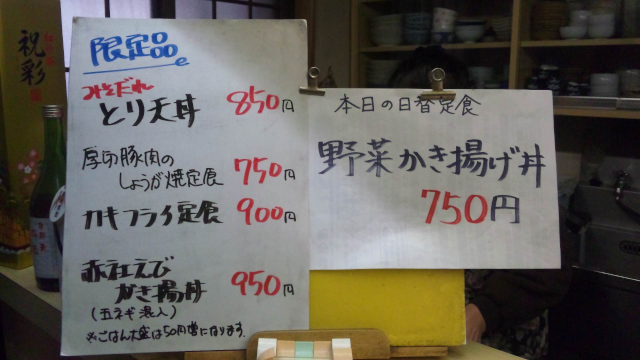 祝彩
限定品
みそだれ
とり天丼 850円
厚切豚肉の
しょうが焼定食 750円
カキフライ定食 900円
赤社えび
かき揚丼 950円
(玉ネギ混入)
※ごはん大盛は50円増になります
本日の日替定食
野菜かき揚げ丼
750円